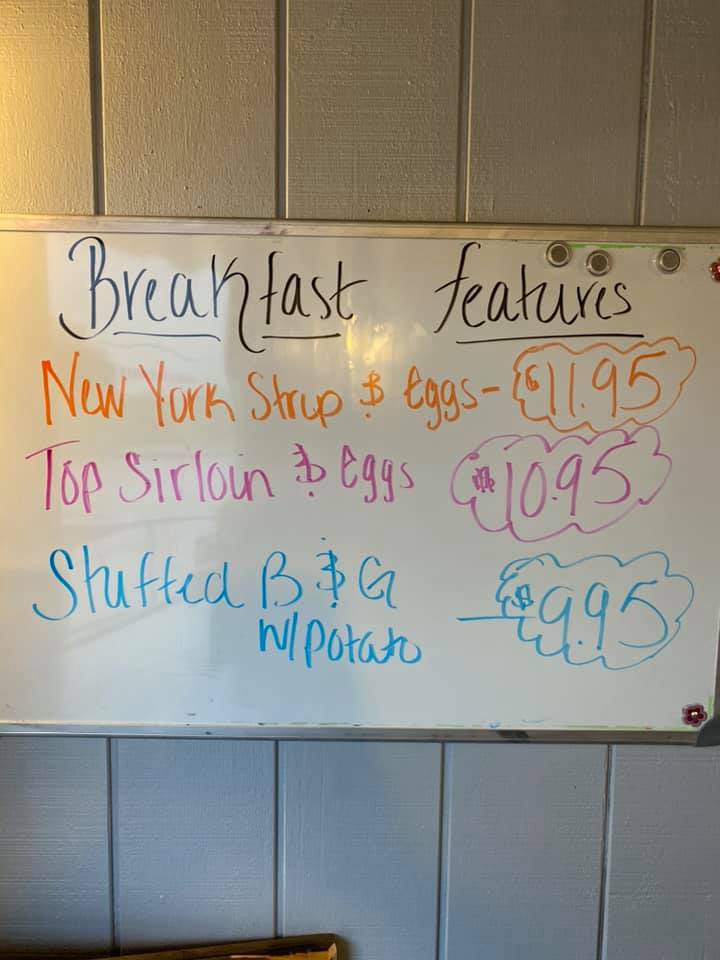 Breakfast features
New York Strip & Eggs - $11.95
Top Sirloin & Eggs $10.95
Stuffed B & G - $9.95
w/ Potato